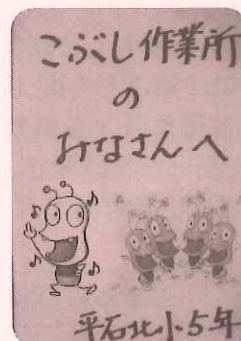 こぶし作業所
の
みなさんへ
平石北小5年